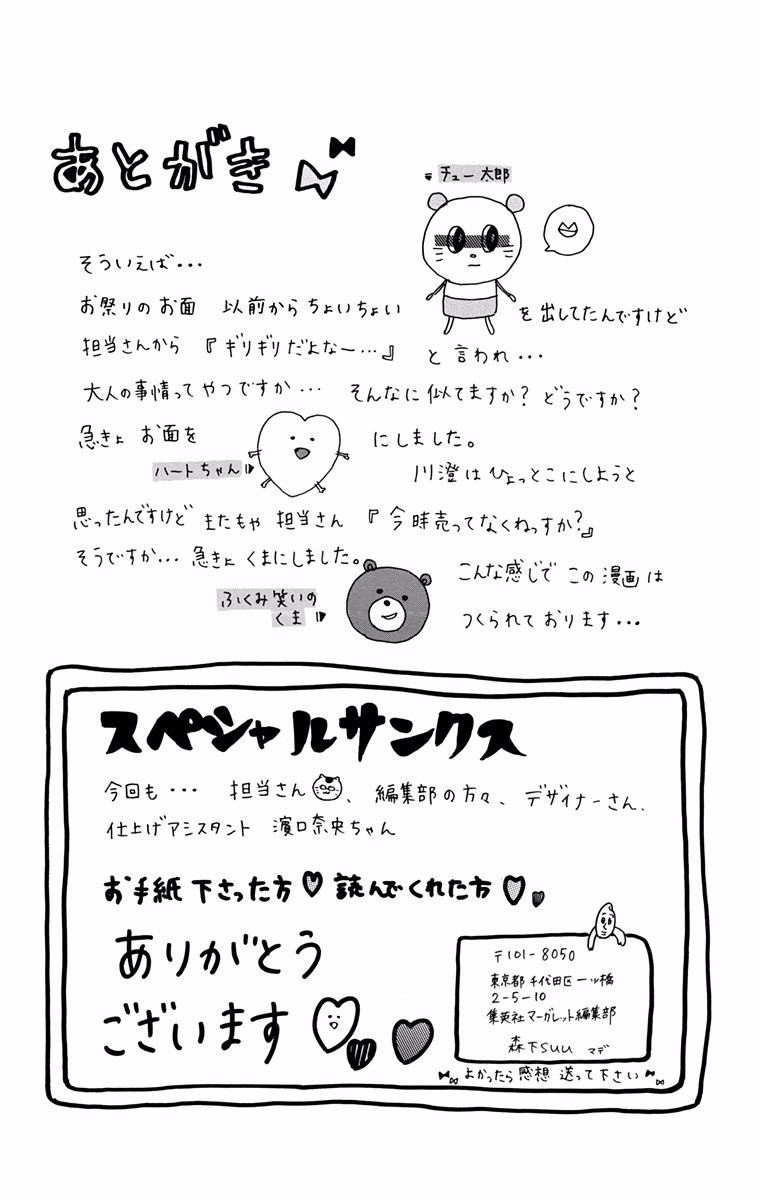 あとがき
チュー太郎
そういえば・・・
お祭りのお面 以前からちょいちょい を出してたんですけど
担当さんから『ギリギリだよなー…』と言われ・・・
大人の事情ってやつですか… そんなに似てますか？どうですか？
急きょ お面を にしました。
ハートちゃん
川澄はひょっとこにしようと
思ったんですけど またもや 担当さん『今時売ってなくねっすか？』
そうですか… 急きょ くまにしました。
ふくみ笑いの
くま
こんな感じで この漫画は
つくられております・・・
スペシャルサンクス
今回も・・・ 担当さん、編集部の方々、デザイナーさん、
仕上げアシスタント 濱口奈央ちゃん
お手紙下さった方 読んでくれた方
ありがとう
ございます
〒101-8050
東京都千代田区一ツ橋
2-5-10
集英社マーガレット編集部
森下suu マデ
よかったら感想送って下さい